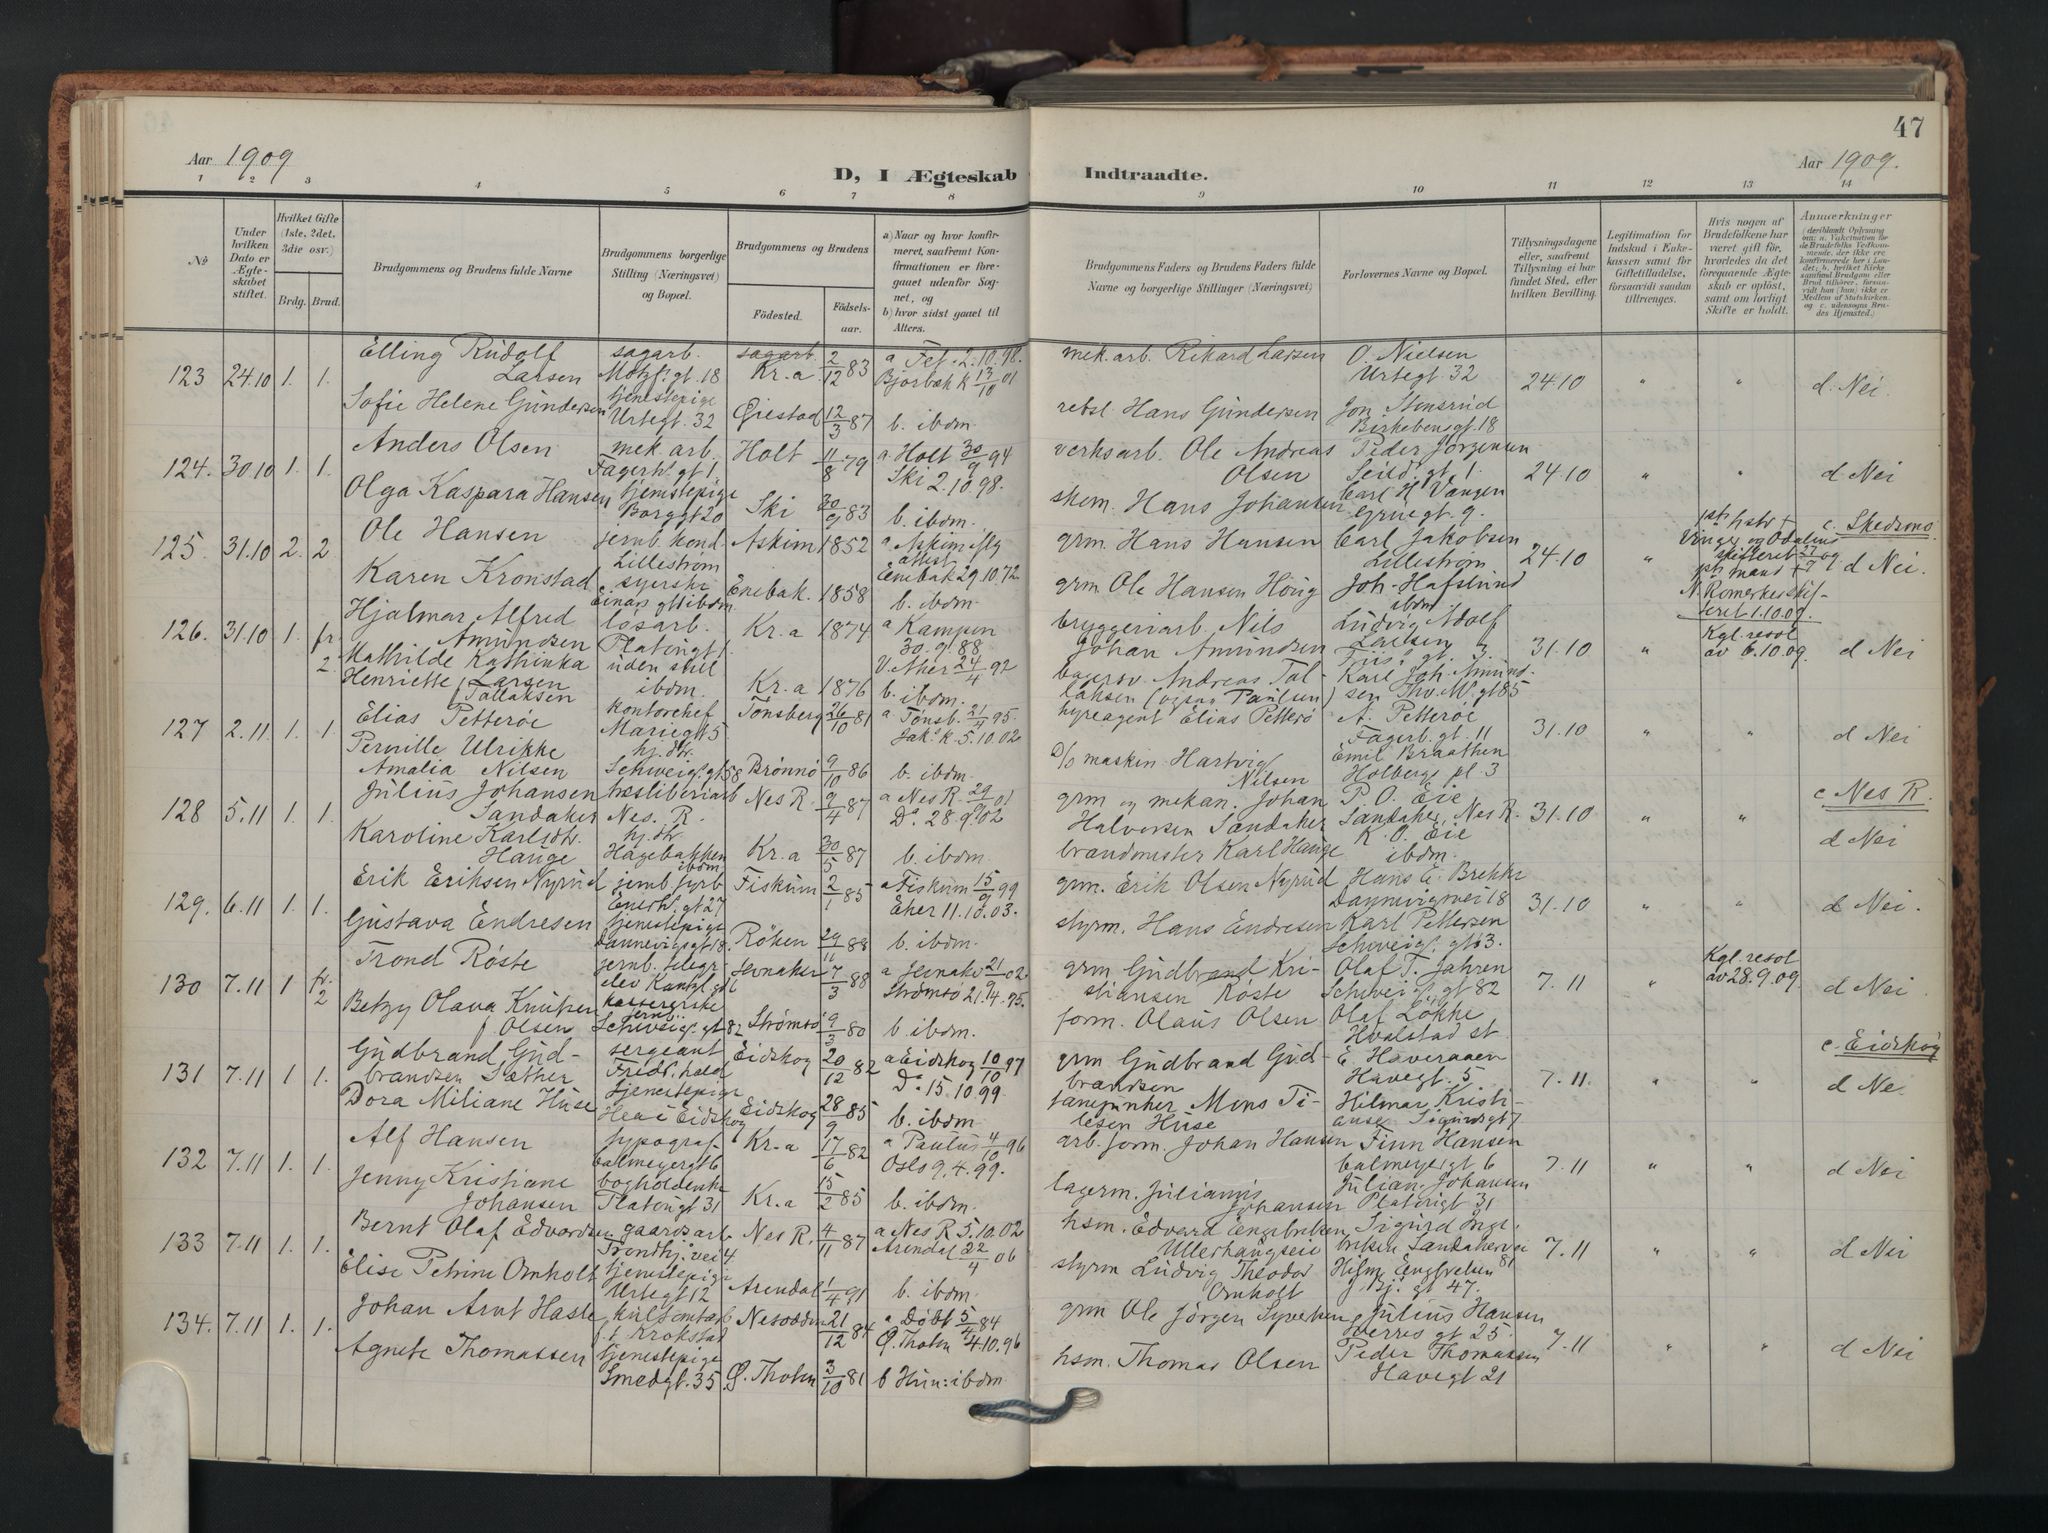 47
Aar 1909
D, I Ægteskab Indtraadte.
Aar 1909.
1 2 3 4 5 6 7 8 9 10 11 12 13 14
№
Under hvilken Dato er Ægteskabet stiftet.
Hvilket Gifte (1ste, 2det, 3die osv.)
Brdg. Brud.
Brudgommens og Brudens fulde Navne
Brudgommens borgerlige Stilling (Næringsvei) og Bopæl.
Brudgommens og Brudens
Fødested.
Fødselsaar.
a) Naar og hvor konfirmeret, saafremt Konfirmationen er foregaaet udenfor Sognet, og
b) hvor sidst gaaet til Alters.
Brudgommens Faders og Brudens Faders fulde Navne og borgerlige Stillinger (Næringsvei)
Forlovernes Navne og Bopæl.
Tillysningsdagene eller, saafremt Tillysning ei har fundet Sted, efter hvilken Bevilling.
Legitimation for Indskud i Enkekassen samt for Giftetilladelse, forsaavidt saadan tiltrænges.
Hvis nogen af Brudefolkene har været gift før, hvorledes da det foregaaende Ægteskab er opløst, samt om lovligt Skifte er holdt.
Anmærkninger
123 24.10 1. 1.
Elling Rudolf Larsen
sagarb. Motzf. gt. 18
Kr.a 2/12 83
a Fet 2.10.98.
mek. arb. Rikard Larsen
O. Nielsen Urtegt. 32
24.10 " " d. Nei.
Sofie Helene Gundersen
tjenestepige Urtegt. 32
Øiestad 12/3 87
Bjorbæk k 13/10 01
b. ibdm.
rebsl. Hans Gundersen
Jon Stensrud Birkebensgt. 18
124. 30.10 1. 1.
Anders Olsen
mek. arb. Fagerh. gt 1
Holt 11/8 79
a. Holt 30/9 94
verksarb. Ole Andreas Olsen
Peder Jørgensen
24.10 " " d Nei
Olga Kaspara Hansen
tjenestepige Borggt 20
Ski 30/9 83
Ski 2.10.98.
b. ibdm.
Hans Johansen
Carl H Vangen Gruegt. 9.
125. 31.10 2. 2.
Ole Hansen
jernb. kond. Lillestrøm
Askim 1852
a Askim iflg attest
grm. Hans Hansen
Carl Jakobsen Lillestrøm
24.10 "
c. Skedsmo
d Nei.
Karen Kronstad
syerske
Enebak. 1858
Enebak 29.10.72
b. ibdm.
grm Ole Hansen Houg
Joh. Hafslund ibdm
N. Romerike skifteret 1.10.09.
126. 31.10 1. fr. 2.
Hjalmar Alfred Amundsen
løsarb. Platengt 1.
Kr.a 1874
a Kampen 30.9.88
bryggeriarb. Nils Johan Amundsen
Ludvig Adolf
31.10 " Kgl. resol av 6.10.09.
d Nei
Mathilde Kathinka Henriette Larsen f Tallaksen
uden stil ibdm.
Kr.a 1876
V. Aker 24/4 92
b. ibdm.
Andreas Tallaksen
Karl Joh. Amundsen Thv. M. gt 85
127 2.11. 1. 1.
Elias Petterøe
kontorchef Mariegt 5
Tønsberg 26/10 81
a Tønsb. 21/4 95.
Elias Petterø
A. Petterøe Fagerb. gt. 11
31.10 " " d Nei
Pernille Ulrikke Amalia Nilsen
hj. dtr. Schweig. gt 58
Brønnø 9/10 86
Jak. k. 5.10.02
b. ibdm.
D/o maskin. Hartvig Nilsen
Emil Braathen Holbergs pl. 3
128 5.11 1. 1.
Julius Johansen Sandaker
træsliberiarb Nes. R.
Nes R. 9/4 87
a Nes R. 29/9 01
grm og mekan. Johan Halvorsen Sandaker
P. O. Eie Sandaker, Nes R.
31.10 " "
c Nes R.
d Nei
Karoline Karlsdtr. Hauge
hj. dtr. Hagebakken ibdm
Kr.a 30/5 87
Do 28.9.02
b. ibdm.
brandmester Karl Hauge
K. O. Eie ibdm.
129. 6.11 1. 1.
Erik Eriksen Nyrud
jernb. fyrb Enerh. gt 27
Fiskum 2/1 85
a Fiskum 15/9 99
grm. Erik Olsen Nyrud
Hans E. Brekke Dannevigsvei 18
31.10 " " d Nei.
Gustava Endresen
tjenestepige Dannevigsgt 18.
Røken 29/11 88
Eker 11.10.03.
b. ibdm
styrm. Hans Endresen
Karl Pettersen Schweig. gt 63.
130 7.11 1 fr. 2
Trond Røste
jernb. telegr. elev
Jevnaker 7/3 88
a Jevnak. 21/9 02
grm Gudbrand Kristiansen Røste
Olaf T. Jahren Schweig. gt 82
7.11 " Kgl. resol av 28.9.09.
d Nei
Betzy Olava Knutsen f Olsen
kassererske jernb. Schweig. gt 82
Strømsø 9/3 80
Strømsø 21.4.95.
b. ibdm.
form. Olaus Olsen
Olaf Løkke Hvalstad st
131 7.11 1 1.
Gudbrand Gudbrandsen Sæther
sergeant Fredr. hald
Eidskog 20/12 82
a Eidskog 10/10 97
grm Gudbrand Gudbrandsen
E. Haveraaen Havegt. 5
7.11. " "
c. Eidskog
d Nei
Dora Miliane Huse
tjenestepige
Eidskog 28/9 85
Do 15.10.99.
b. ibdm.
Mons Tilesen Huse
Hilmar Kristiansen Sigurdsgt 7
132 7.11 1. 1.
Alf Hansen
typograf Calmeyergt 6
Kr.a 17/6 82
a Paulus 4/10 96
arb. form. Johan Hansen
Finn Hansen Calmeyergt 6
7.11 " " d Nei
Jenny Kristiane Johansen
bogholderske Platengt 31
Kr.a 15/2 85
Oslo 9.4.99.
b. ibdm.
lagerm. Julianus Johansen
Julian Johansen Platengt 31
133 7.11 1. 1.
Bernt Olaf Edvardsen
gaardsarb Trondhj. vei 4
Nes R. 4/11 87
a Nes R 5.10.02
hsm. Edvard Engebretsen Ullerhaugseie
Sigurd Ingebriksen Sandakervei 81
7.11 " " d Nei
Elise Petrine Omholt
tjenestepige Urtegt 12
Arendal 1/4 91
Arendal 22/4 06
b. ibdm
styrm Ludvig Theodor Omholt
Hilm. Engbretsen J. Bj. gt 47.
134. 7.11 1. 1.
Johan Arnt Hasle
Krokstad
Nesodden 21/12 84
a Døbt 5/4 84
grm Ole Jørgen Syversen
Julius Hansen Sverres gt 25
7.11 " " d Nei
Agnete Thomassen
tjenestepige Smedgt. 35
Ø. Thoten 3/10 81
Ø. Thoten 4.10.96
b Hun: ibdm
hsm. Thomas Olsen
Peder Thomassen Havegt 21